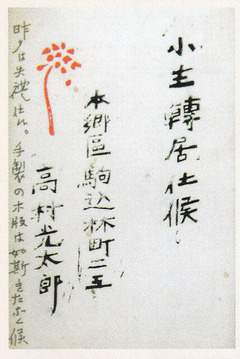 小生轉居仕候
本郷區駒込林町二五
高村光太郎
昨夕は失禮せり。手製の木版は如斯きたなく候